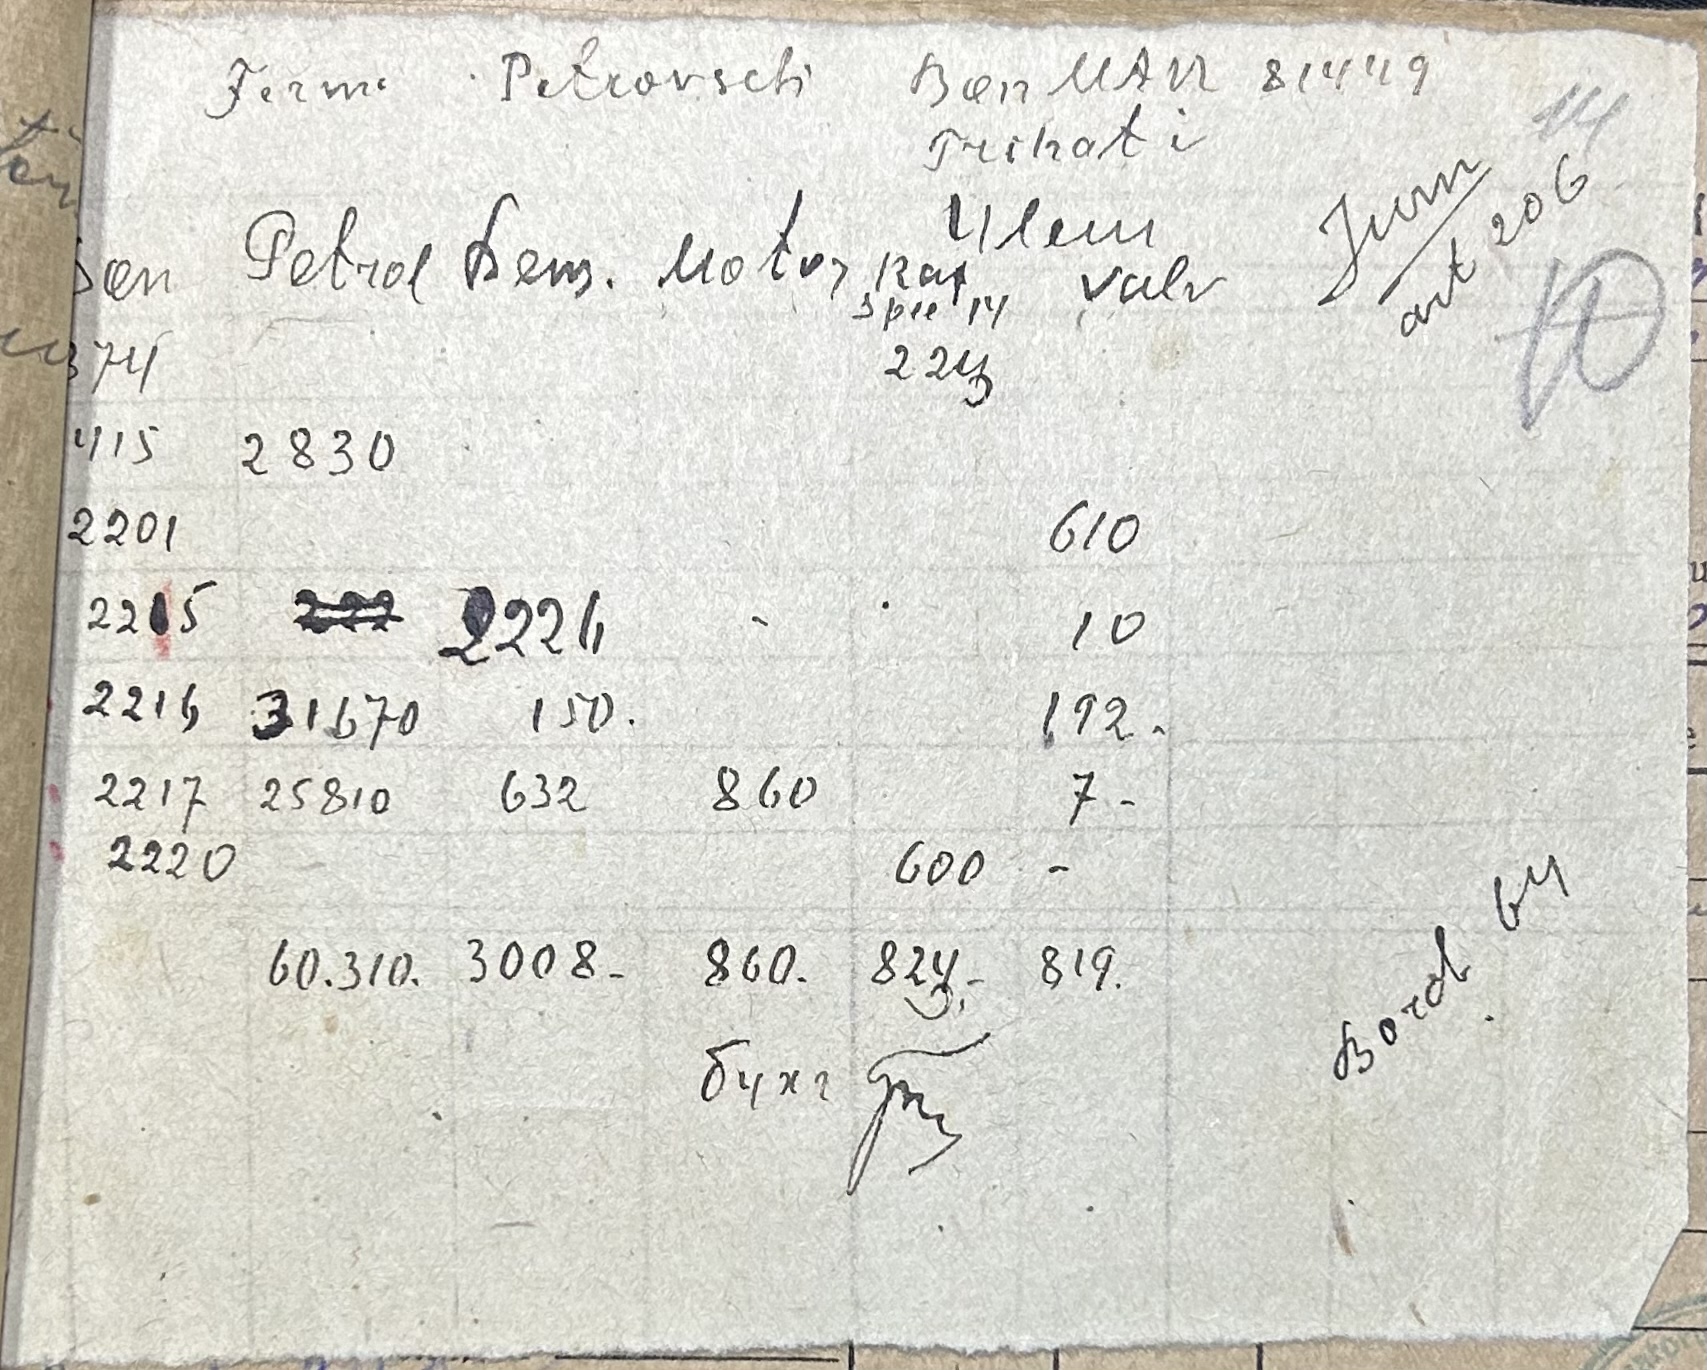 Ferma Petrovsch Bon MAN 81449
Trihati
14
Jurn
art 206
10
Bon Petrol Benz. Motor Ulei valv
374 224
415 2830
2201 610
2215 2226 - 10
2216 31670 150. 192.
2217 25810 632 860 7-
2220 600 -
60.310. 3008- 860. 824.- 819.
бухг
Bord. 64